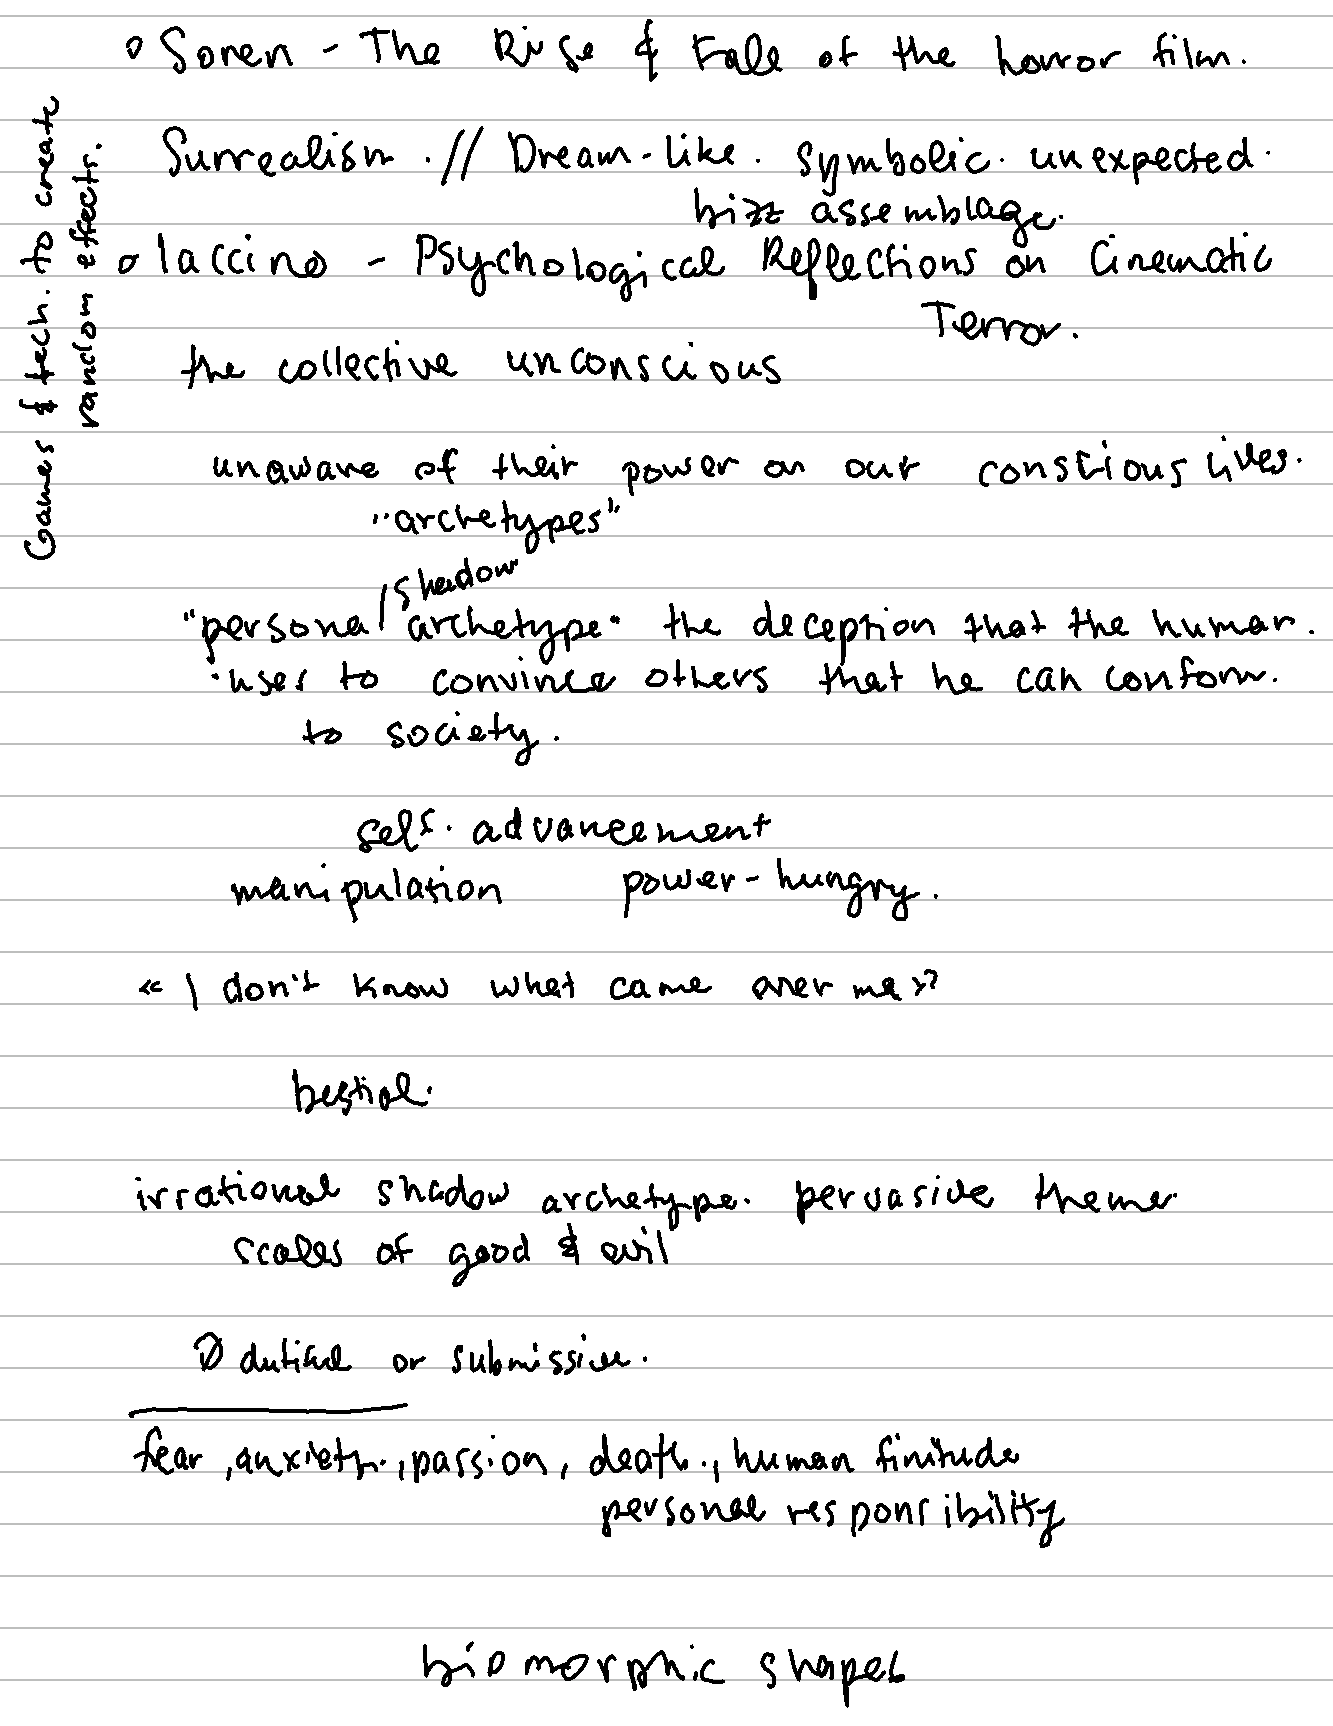 o Soren - The Rise & Fall of the horror film.
Surrealism. // Dream-like. symbolic. unexpected.
bizz assemblage.
o Iaccino - Psychological Reflections on Cinematic
Terror.
the collective unconscious
unaware of their power on our conscious lives.
"archetypes"
/ shadow
"persona archetype" the deception that the human.
uses to convince others that he can conform.
to society.
self. advancement
manipulation power-hungry.
« I don't know what came over me »?
bestial.
irrational shadow archetype. pervasive theme.
scales of good & evil
Ø dutiful or submissive.
fear, anxiety, passion, death., human finitude
personal responsibility
biomorphic shapes
Games & tech. to create
random effects.